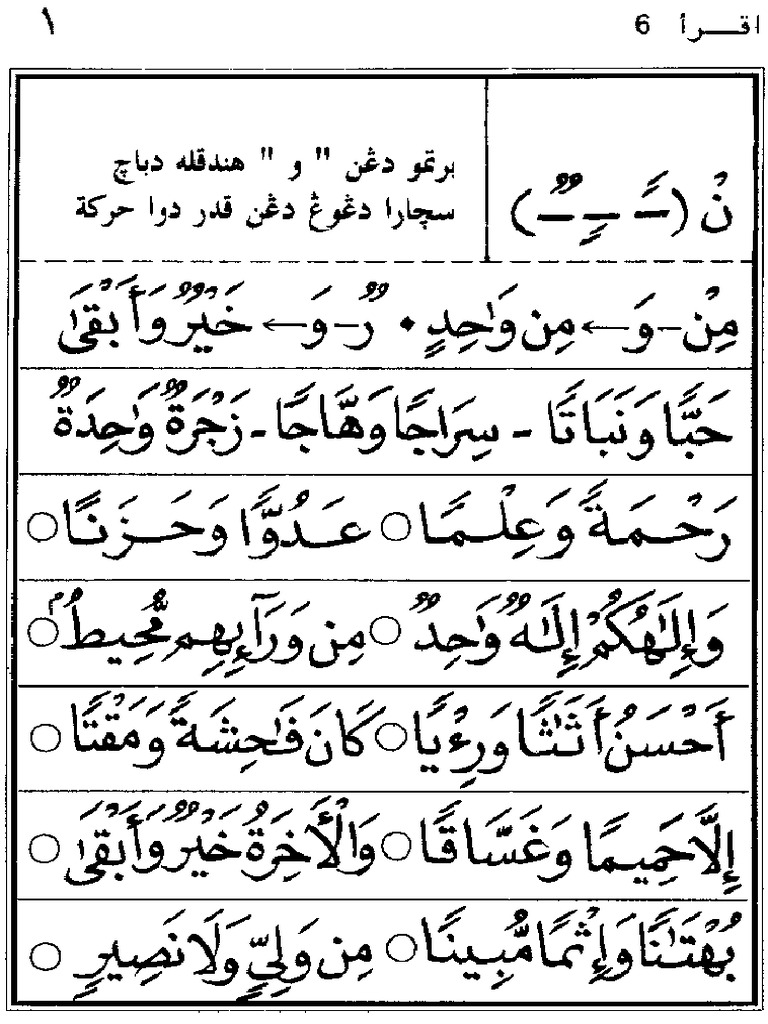 اقـــرأ 6 ١
نْ (ــًـ ــٍـ ــٌـ)
برتمو دڠن " و " هندقله دباچ
سچارا دڠوڠ دڠن قدر دوا حركة
مِنْ-وَ ← مِن وَٰحِدٍ • رٌ-وَ ← خَيْرٌ وَأَبْقَىٰ
حَبًّا وَنَبَاتًا - سِرَاجًا وَهَّاجًا - زَجْرَةٌ وَٰحِدَةٌ
رَحْـمَةً وَعِلْـمًا ○ عَـدُوًّا وَحَـزَنًا ○
وَإِلَٰهُكُمْ إِلَٰهٌ وَٰحِدٌ ○ مِن وَرَآءِبِهِم مُّحِيطٌۢ ○
أَحْسَنُ أَثَٰثًا وَرِءْيًا ○ كَانَ فَٰحِشَةً وَمَقْتًا ○
إِلَّا حَمِيمًا وَغَسَّاقًا ○ وَالْأَخِرَةُ خَيْرٌ وَأَبْقَىٰ ○
بُهْتَٰنًا وَإِثْمًا مُّبِينًا ○ مِن وَلِيٍّ وَلَا نَصِيرٍ ○